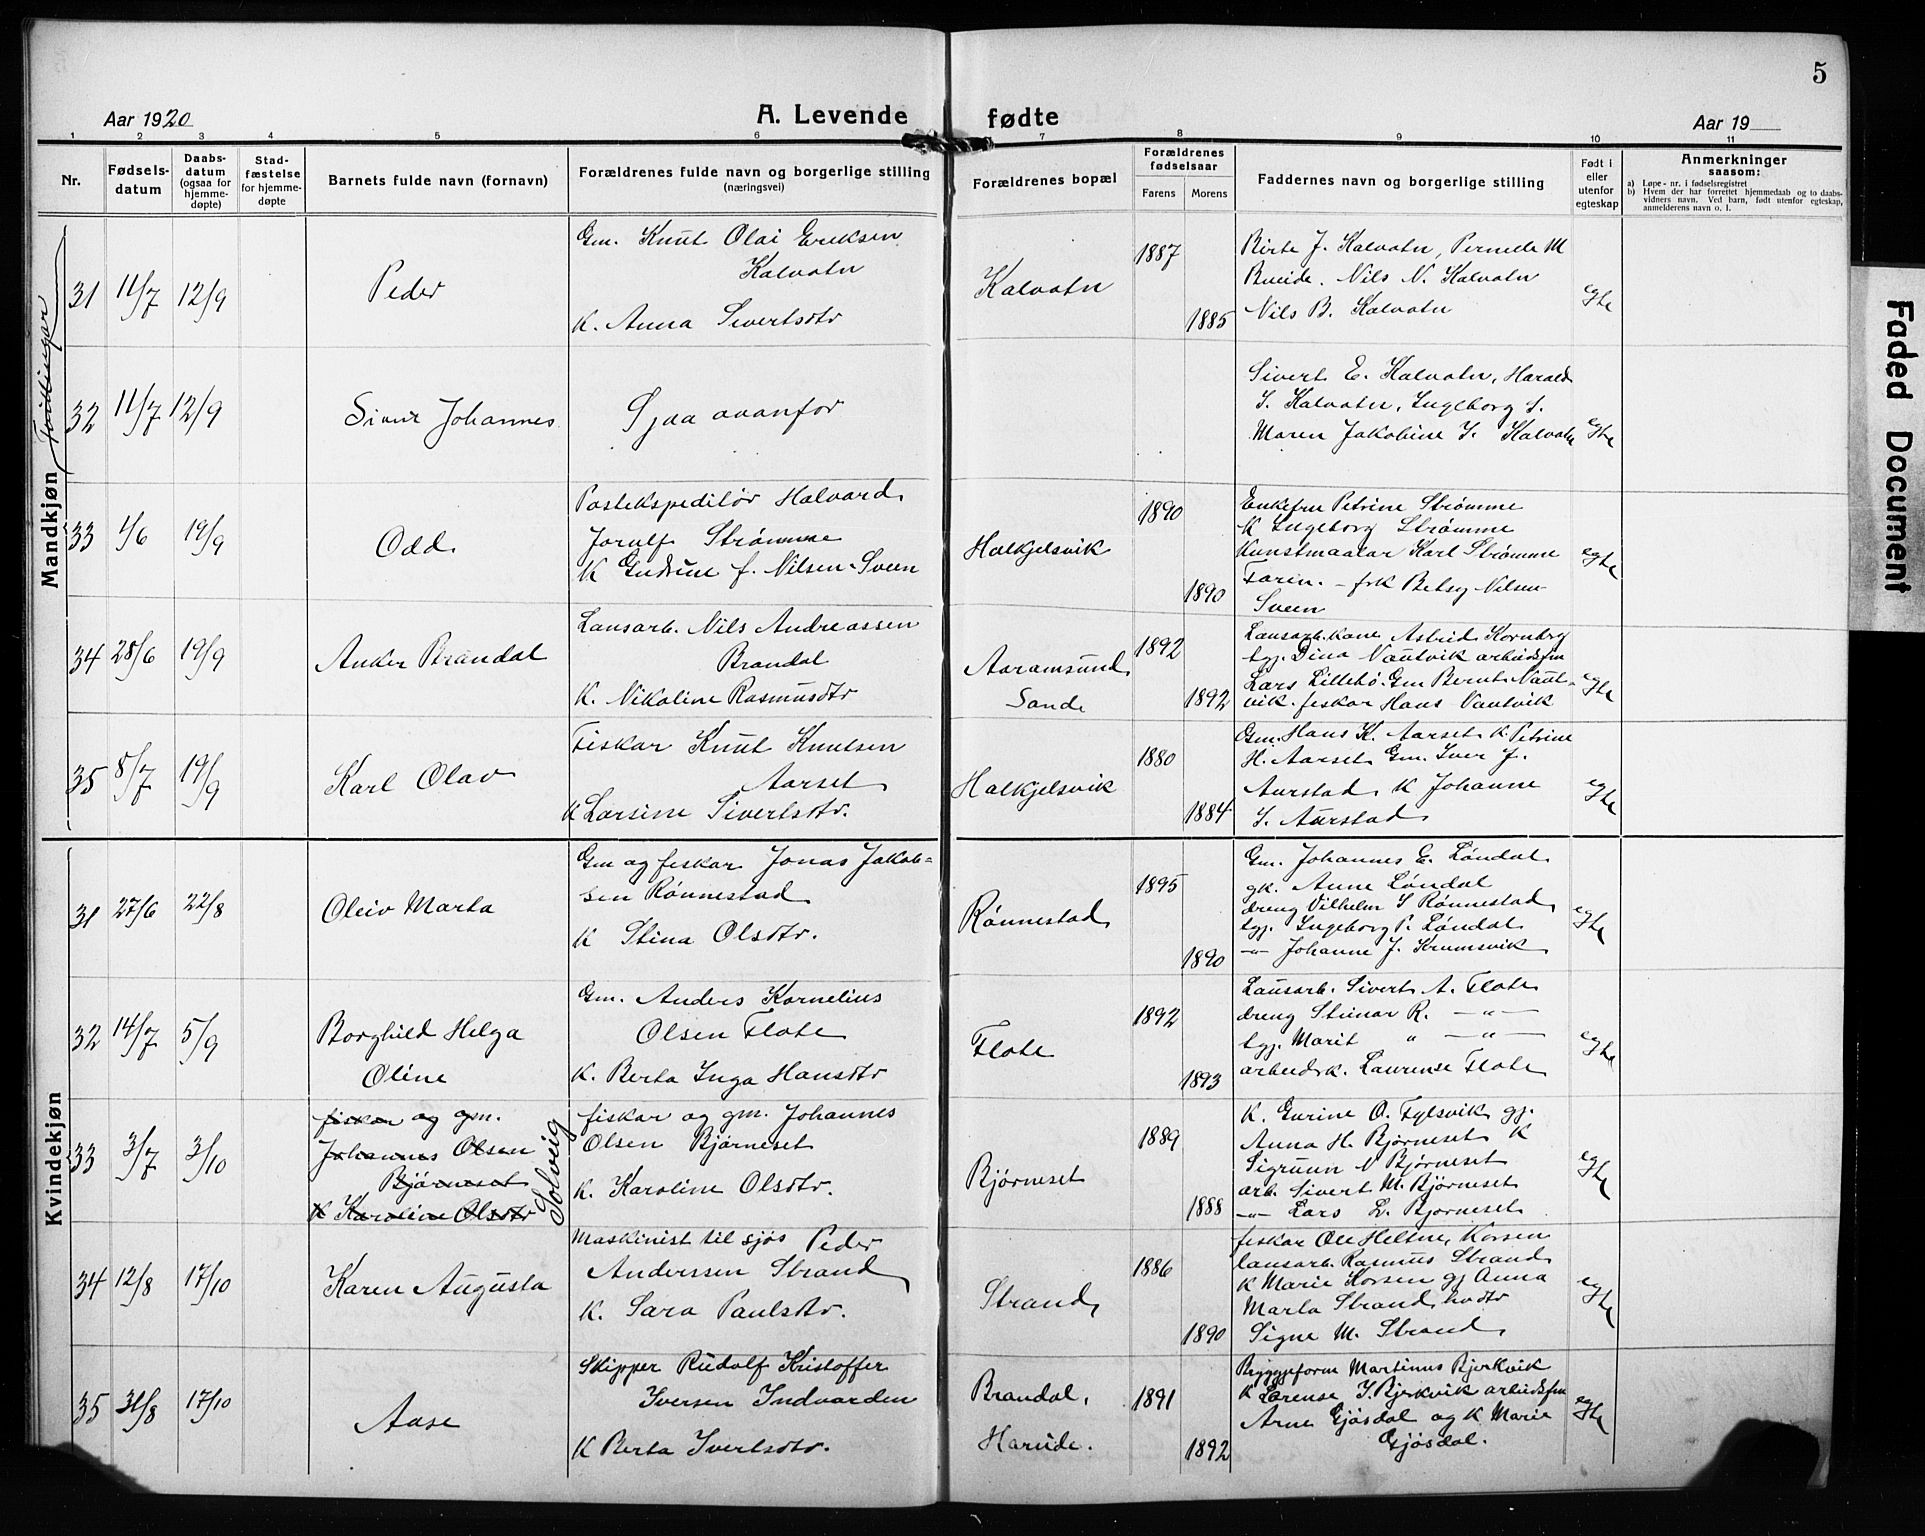 5
Aar 1920
A. Levende fødte
Aar 19
1 2 3 4 5 6 7 8 9 10 11
Nr.
Fødsels-
datum
Daabs-
datum
(ogsaa for
hjemme-
døpte)
Stad-
fæstelse
for hjemme-
døpte
Barnets fulde navn (fornavn)
Forældrenes fulde navn og borgerlige stilling
(næringsvei)
Forældrenes bopæl
Forældrenes
fødselsaar
Farens Morens
Faddernes navn og borgerlige stilling
Født i
eller
utenfor
egteskap
Anmerkninger
saasom:
a) Løpe-nr. i fødselsregistret
b) Hvem der har forrettet hjemmedaab og to daabs-
vidners navn. Ved barn, født utenfor egteskap,
anmelderens navn o. l.
Mandkjøn
Tvillinger
31 11/7 12/9
Peder
Gm. Knut Olai Eriksen
Kalvatn
K. Anna Sivertsdtr
Kalvatn
1887
1885
Birte J. Kalvatn, Pernele M
Bueide. Nils N. Kalvatn
Nils B. Kalvatn
egte
32 11/7 12/9
Sivur Johannes
Sjaa ovanfor
Sivert E. Kalvatn, Harald
S. Kalvatn, Ingeborg S.
Maren Jakobine S. Kalvatn
egte
33 4/6 19/9
Odd
Postekspeditør Halvard
Jorulf Strømme
K Gudrun f. Nilsen-Sveen
Halkjelsvik
1890
1890
Enkefru Petrine Strømme
K Ingeborg Strømme
Kunstmaalar Karl Strømme
Farin. - frk Betsy Nilsen-
Sveen
egte
34 28/6 19/9
Anker Brandal
Lausarb. Nils Andreassen
Brandal
K. Nikoline Rasmusdtr
Aaramsund
Sande
1892
1892
Lausarb.kone Astrid Kornberg
tgj. Dina Vautvik arbeidsfm
Lars Lillebø. Gm Bernt Vaut-
vik. fiskar Hans Vautvik
egte
35 8/7 19/9
Karl Olav
Fiskar Knut Knutsen
Aarset
K Larsine Sivertsdtr.
Halkjelsvik
1880
1884
Gm. Hans K. Aarset K Petrine
H. Aarset Gm. Iver J.
Aurstad K Johanne
S. Aurstad
egte
Kvindekjøn
31 27/6 22/8
Oleiv Marta
Gm og fiskar Jonas Jakob-
sen Rønnestad
K Stina Olsdtr.
Rønnestad
1895
1890
Gm. Johannes E. Løndal
gk. Anne Løndal
dreng Vilhelm S Rønnestad
tgj. Ingeborg P. Løndal
-"- Johanne J. Krumsvik
egte
32 14/7 5/9
Borghild Helga
Oline
Gm. Anders Kornelius
Olsen Flote
K. Berta Inga Hansdtr
Flote
1892
1893
Lausarb. Sivert A. Flote
dreng Steinar R. -"-
tgj. Marit " -"-
arbeidsk. Laurense Flote
egte
33 3/7 3/10
fiskar og gm.
Johannes Olsen
Bjørneset
K Karoline Olsdtr
Solveig
fiskar og gm. Johannes
Olsen Bjørneset
K. Karoline Olsdtr.
Bjørneset
1889
1888
K. Gurine O. Fylsvik gj.
Anna H. Bjørneset K
Sigrunn N Bjørneset
arb. Sivert M. Bjørneset
-"- Lars L. Bjørneset
egte
34 12/8 17/10
Karen Augusta
Maskinist til sjøs Peder
Anderssen Strand
K. Sara Paulsdtr.
Strand
1886
1890
fiskar Ole Heltne, Korsen
lausarb. Rasmus Strand
K Marie Korsen gj Anna
Marta Strand
Signe M. Strand
egte
35 31/8 17/10
Aase
Skipper Rudolf Kristoffer
Iversen Indvarden
K Berta Ivertsdtr.
Brandal.
Hareide.
1891
1892
Byggjeform Martinus Bjerkvik
K Lorense S. Bjerkvik arbeidsfm
Arne Gjøsdal og K Marie
Gjøsdal.
egte
Faded Document